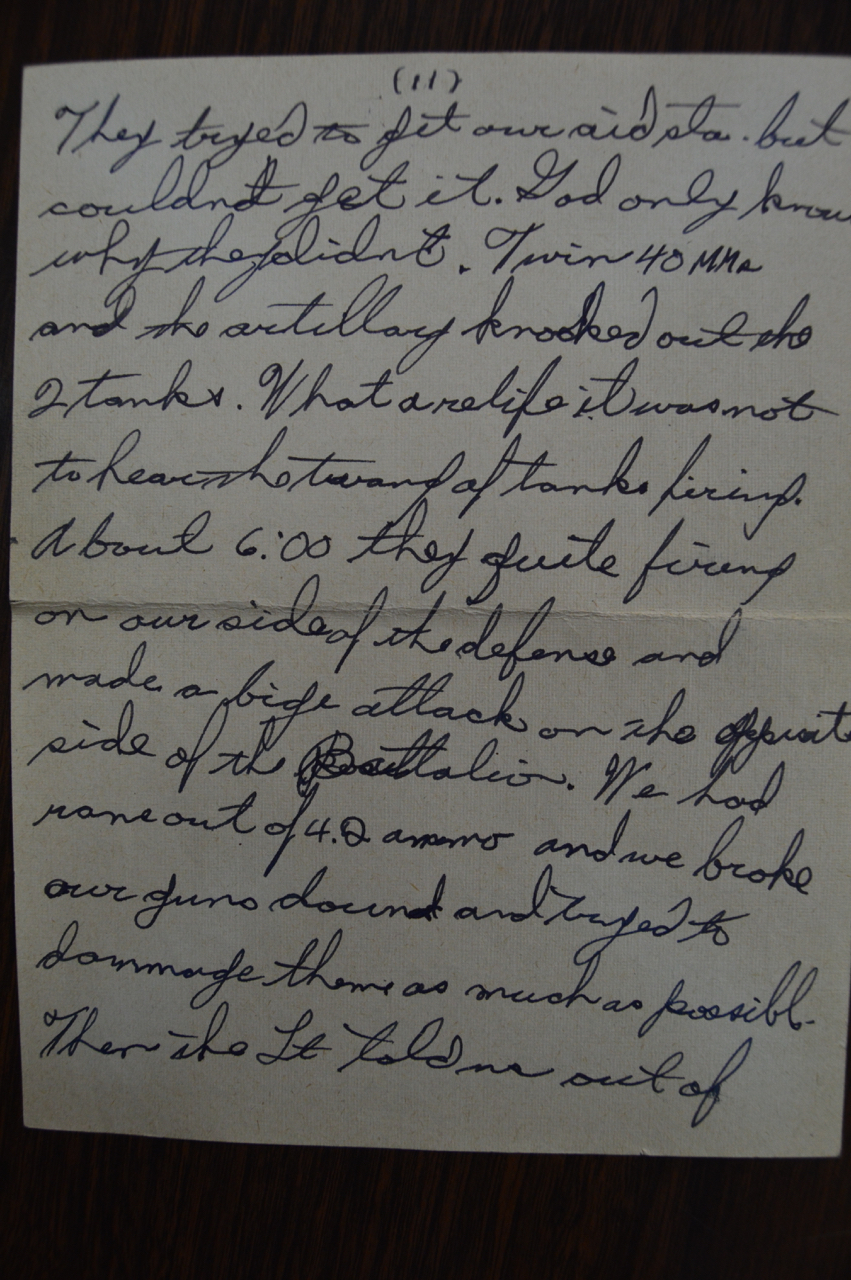 (11)
They tryed to git our aid sta. but
couldnt get it. God only know
why they didnt. Twin 40 MMs
and the artillary knocked out the
2 tanks. What a relife it was not
to hear the twang of tanks firing.
About 6:00 they quite firing
on our side of the defense and
made a bige attack on the oppisite
side of the Battalion. We had
rane out of 4.2 ammo and we broke
our guns dound and tryed to
dammage them as much as possibl.
Then the Lt told us out of